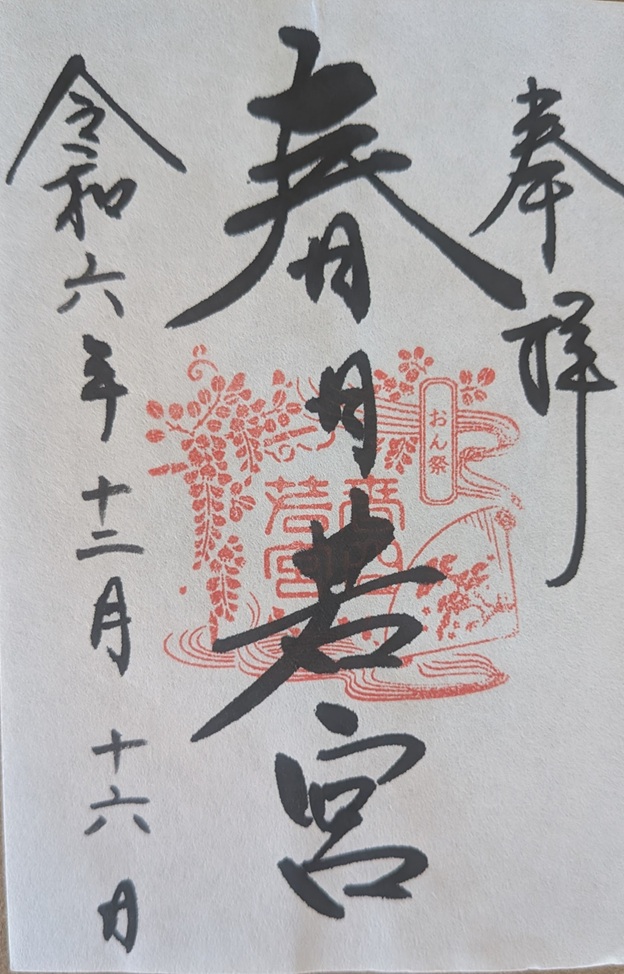 奉拝
春日若宮
春日
若宮
おん祭
令和六年十二月十六日